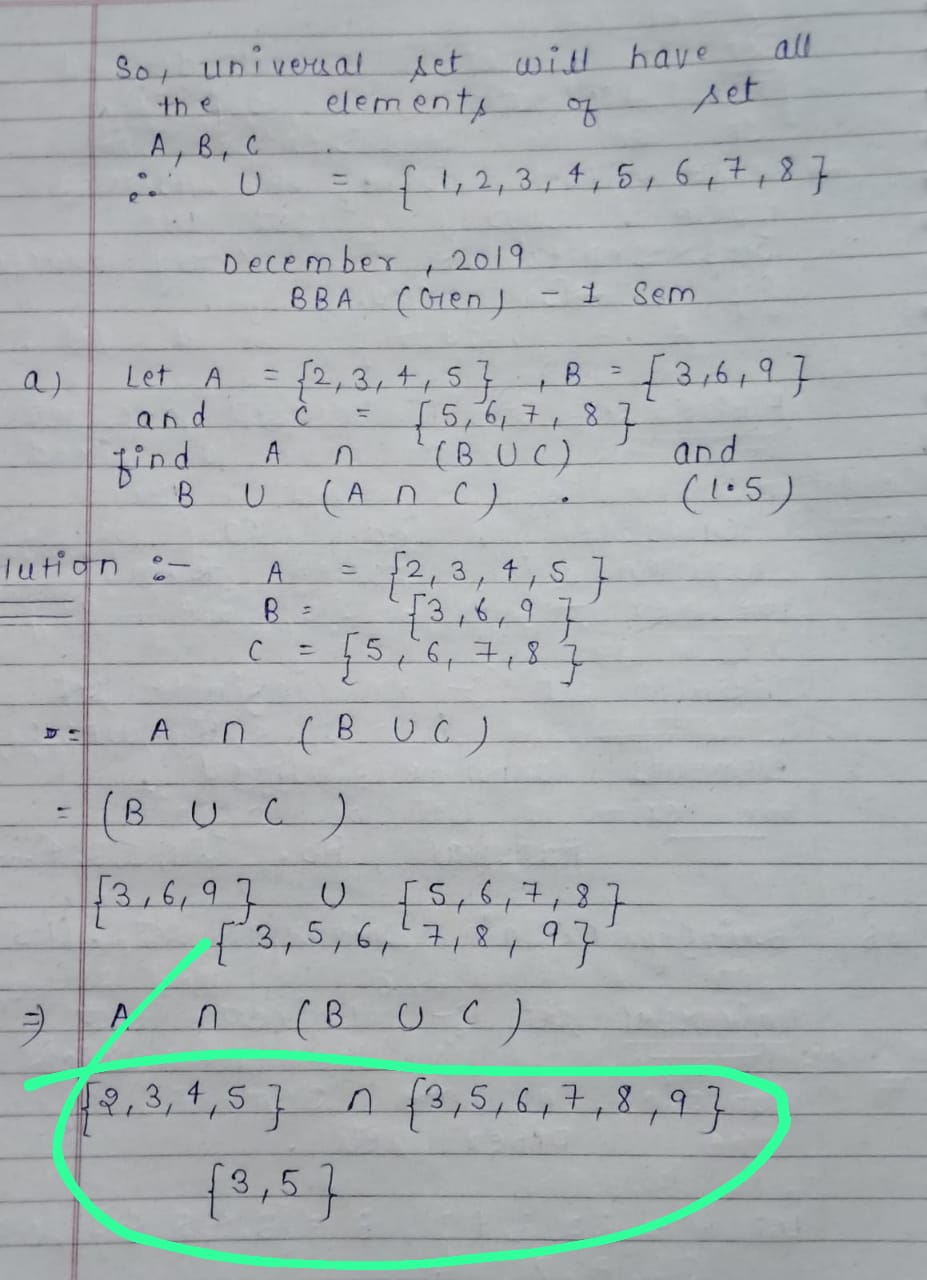 So, universal set will have all
the elements of set
A, B, C
∴ U = { 1, 2, 3, 4, 5, 6, 7, 8 }
December, 2019
BBA (Gen) - 1 Sem
a) Let A = {2, 3, 4, 5}, B = {3, 6, 9}
and C = {5, 6, 7, 8}
find A ∩ (B ∪ C) and
B ∪ (A ∩ C). (1.5)
lution :- A = {2, 3, 4, 5}
B = {3, 6, 9}
C = {5, 6, 7, 8}
= A ∩ (B ∪ C)
= (B ∪ C)
{3, 6, 9} ∪ {5, 6, 7, 8}
{3, 5, 6, 7, 8, 9}
⇒ A ∩ (B ∪ C)
{2, 3, 4, 5} ∩ {3, 5, 6, 7, 8, 9}
{3, 5}